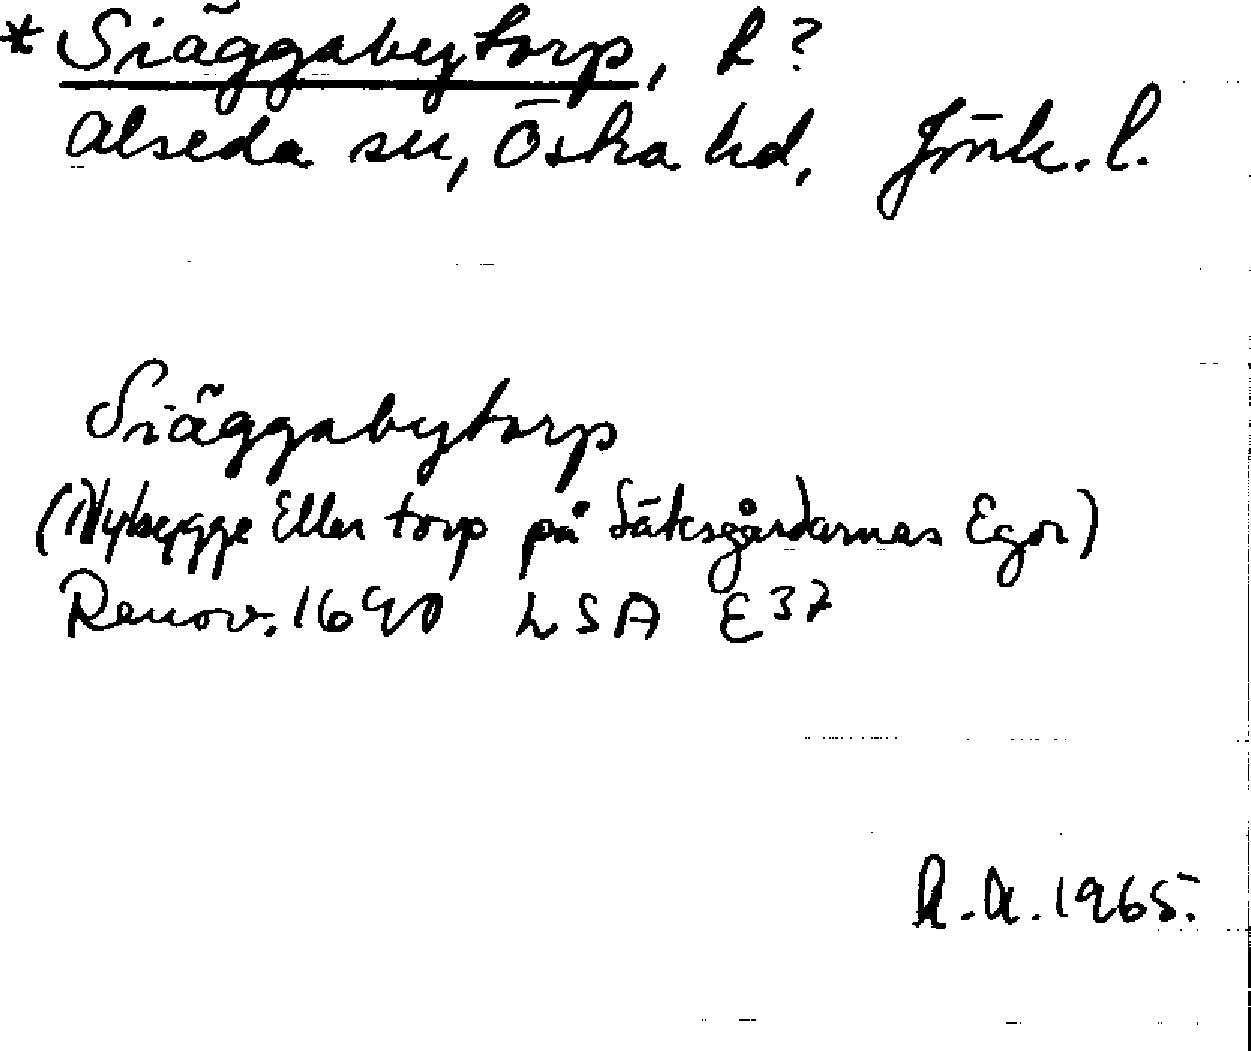 *Siäggabytorp, l?
Alseda sn, Östra hd, Jönk. l.
Siäggabytorp
(Nybygge Eller torp på Sätesgårdarnas Egor)
Renov. 1690 LSA E37
R.A. 1965.